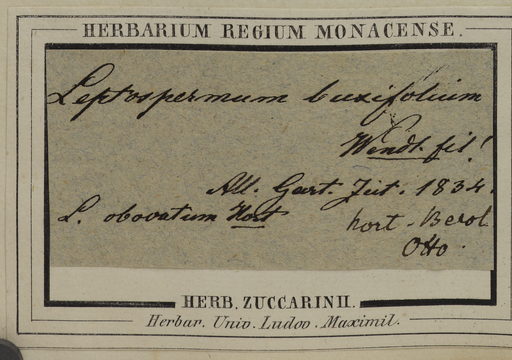 HERBARIUM REGIUM MONACENSE.
Leptospermum buxifolium
Wendt. fil!
All. Gart. Zeit. 1834.
L. obovatum Hort
hort. Berol
Otto.
HERB. ZUCCARINII.
Herbar. Univ. Ludov. Maximil.